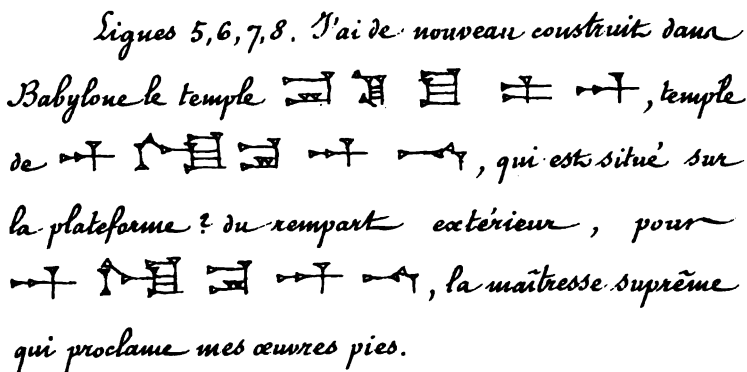 Lignes 5,6,7,8. J'ai de nouveau construit dans
Babylone le temple , temple
de , qui est situé sur
la plateforme ? du rempart extérieur, pour
, la maîtresse suprême
qui proclame mes œuvres pies.